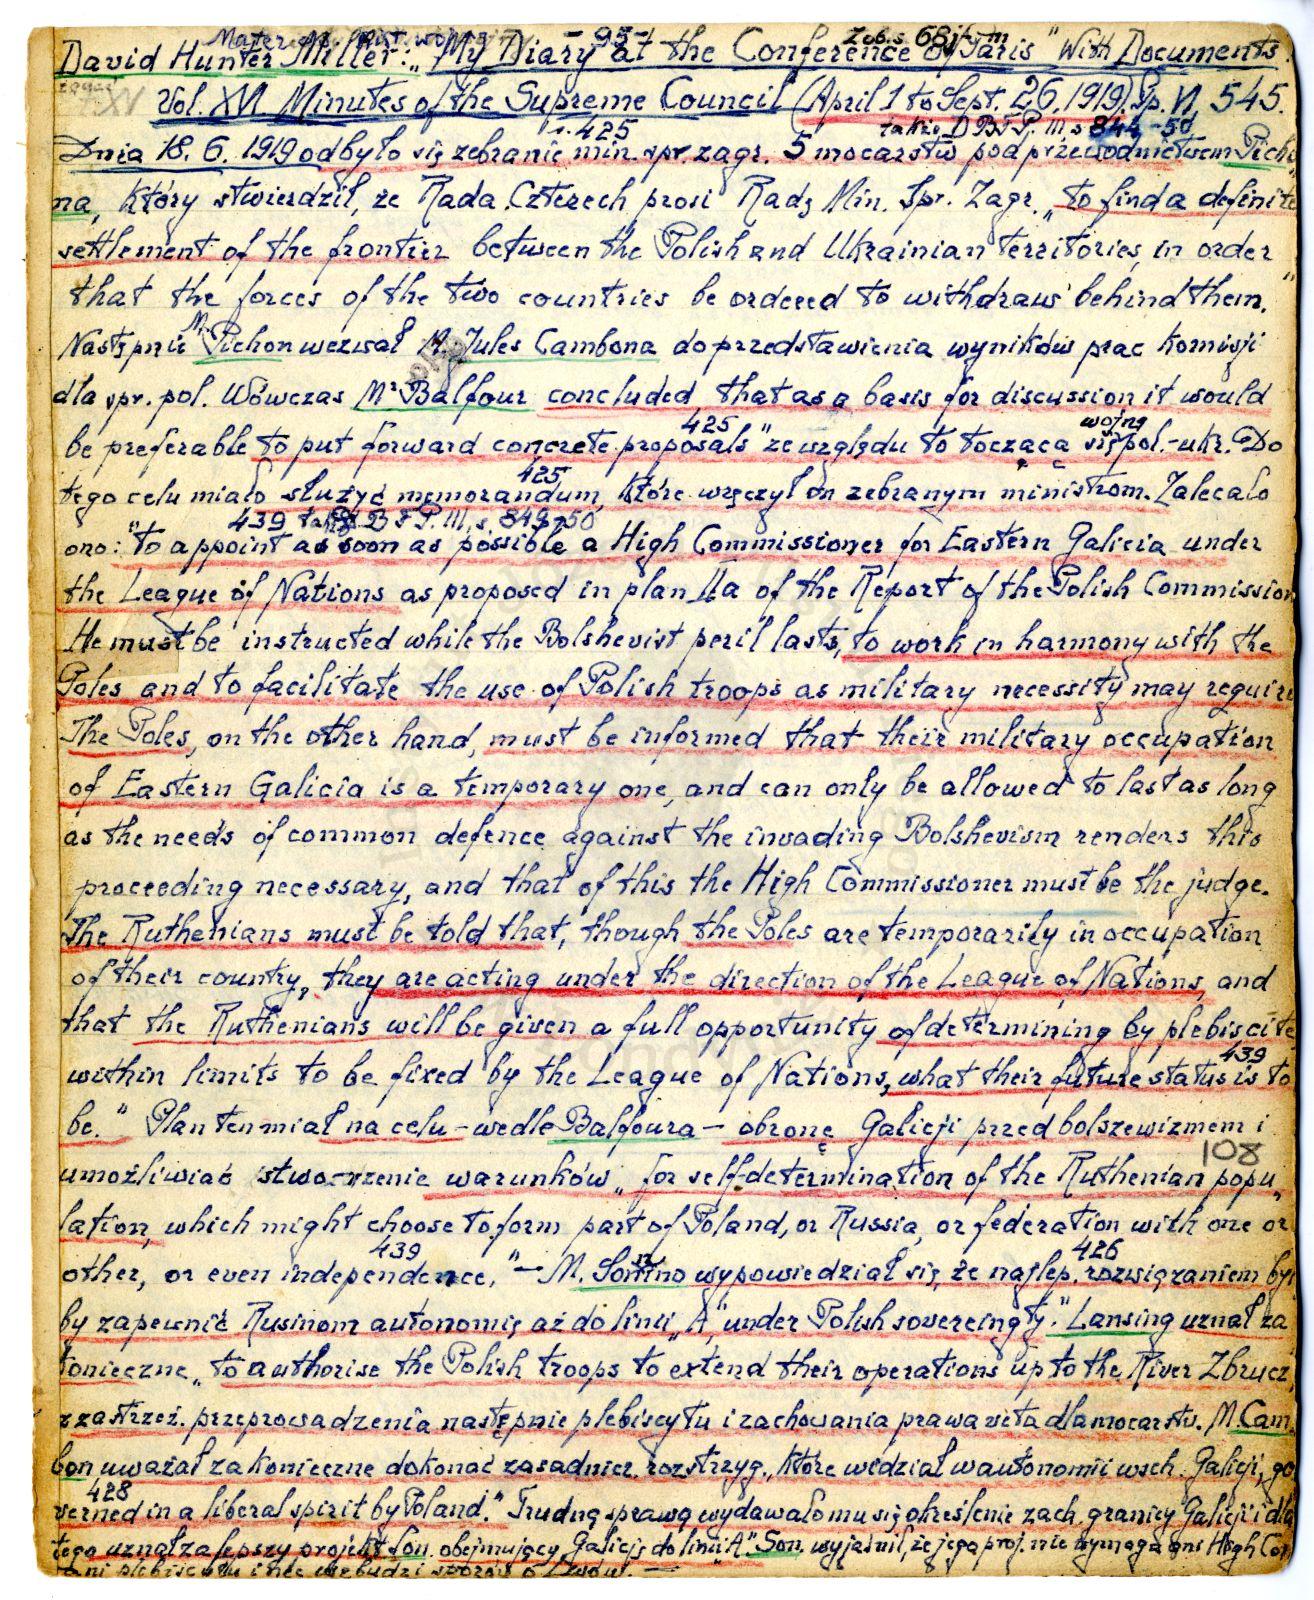 - 95 -
David Hunter Miller: „My Diary at the Conference of Paris" With Documents.
Vol. XVI Minutes of the Supreme Council (April 1 to Sept. 26. 1919) Sp. VI 545.
s. 425 także D B F P. III s 844-50
Dnia 18. 6. 1919 odbyło się zebranie min. spr zagr. 5 mocarstw pod przewodnictwem Picho„
na, który stwierdził, że Rada Czterech prosi Radę Min. Spr. Zagr. „to find a definite
settlement of the frontier between the Polish and Ukrainian territories, in order
that the forces of the two countries be ordered to withdraw behind them."
Następnie M. Pichon wezwał M. Jules Cambona do przedstawienia wyników prac Komisji
dla spr. pol. Wówczas Mr Balfour concluded that as a basis for discussion it would
be preferable to put forward concrete proposals" 425 ze względu to toczącą się wojnę pol.-ukr. Do
tego celu miało służyć memorandum, 425 które wręczył on zebranym ministrom. Zalecało
439 także D B F P. III, s. 849-50
ono: "to appoint as soon as possible a High Commissioner for Eastern Galicia under
the League of Nations as proposed in plan IIa of the Report of the Polish Commission
He must be instructed while the Bolshevist peril lasts, to work in harmony with the
Poles and to facilitate the use of Polish troops as military necessity may require
The Poles, on the other hand, must be informed that their military occupation
of Eastern Galicia is a temporary one, and can only be allowed to last as long
as the needs of common defence against the invading Bolshevism renders this
proceeding necessary, and that of this the High Commissioner must be the judge.
The Ruthenians must be told that, though the Poles are temporarily in occupation
of their country, they are acting under the direction of the League of Nations, and
that the Ruthenians will be given a full opportunity of determining by plebiscite
within limits to be fixed by the League of Nations, what their future status is to
439
be." Plan ten miał na celu – wedle Balfoura – obronę Galicji przed bolszewizmem i
108
umożliwiać stworzenie warunków „for self-determination of the Ruthenian popu„
lation, which might choose to form part of Poland, or Russia, or federation with one or
other, or even independence," 439 – M. Sonnino wypowiedział się, że najlep. 426 rozwiązaniem było
by zapewnić Rusinom autonomię aż do linii „A" „under Polish sovereingty." Lansing uznał za
konieczne „to authorise the Polish troops to extend their operations up to the River Zbrucz,
z zastrzeż. przeprowadzenia następnie plebiscytu i zachowania prawa veta dla mocarstw. M. Cam„
bon uważał za konieczne dokonać zasadnicz. rozstrzyg., które widział w autonomii wsch. Galicji, „go
428
verned in a liberal spirit by Poland." Trudną sprawą wydawało mu się określenie zach. granicy Galicji i dla
tego uznał za lepszy projekt Son. obejmujący Galicję do linii „A" Son. wyjaśnił, że jego proj. nie wymaga ani High Com
ani plebiscytu i nie wzbudzi sporów o Lwów. –